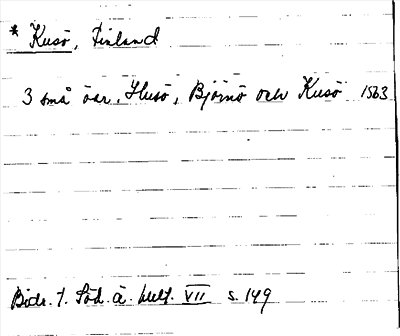 * Kusö, Finland
3 små öar, Husö, Björnö och Kusö 1563
Bidr. t. Söd. ä. kult. VII s. 149